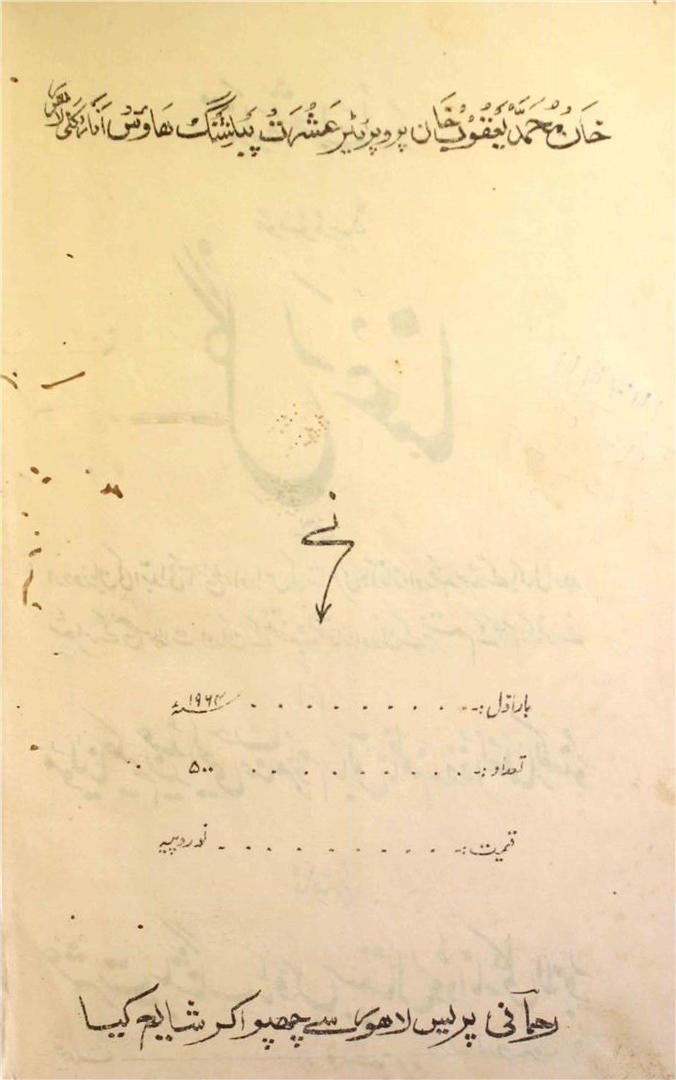 خان محمد یعقوب خان پروپرئیٹر عشرت پبلشنگ ھاؤس انارکلی لاھور
نے
بار اول :- . . . . . . . . . . ۱۹۶۴ء
تعداد :- . . . . . . . . . . ۵۰۰
قیمت :- . . . . . . . . . . نو روپیہ
رحمآنی پریس لاھور سے چھپوا کر شایع کیا